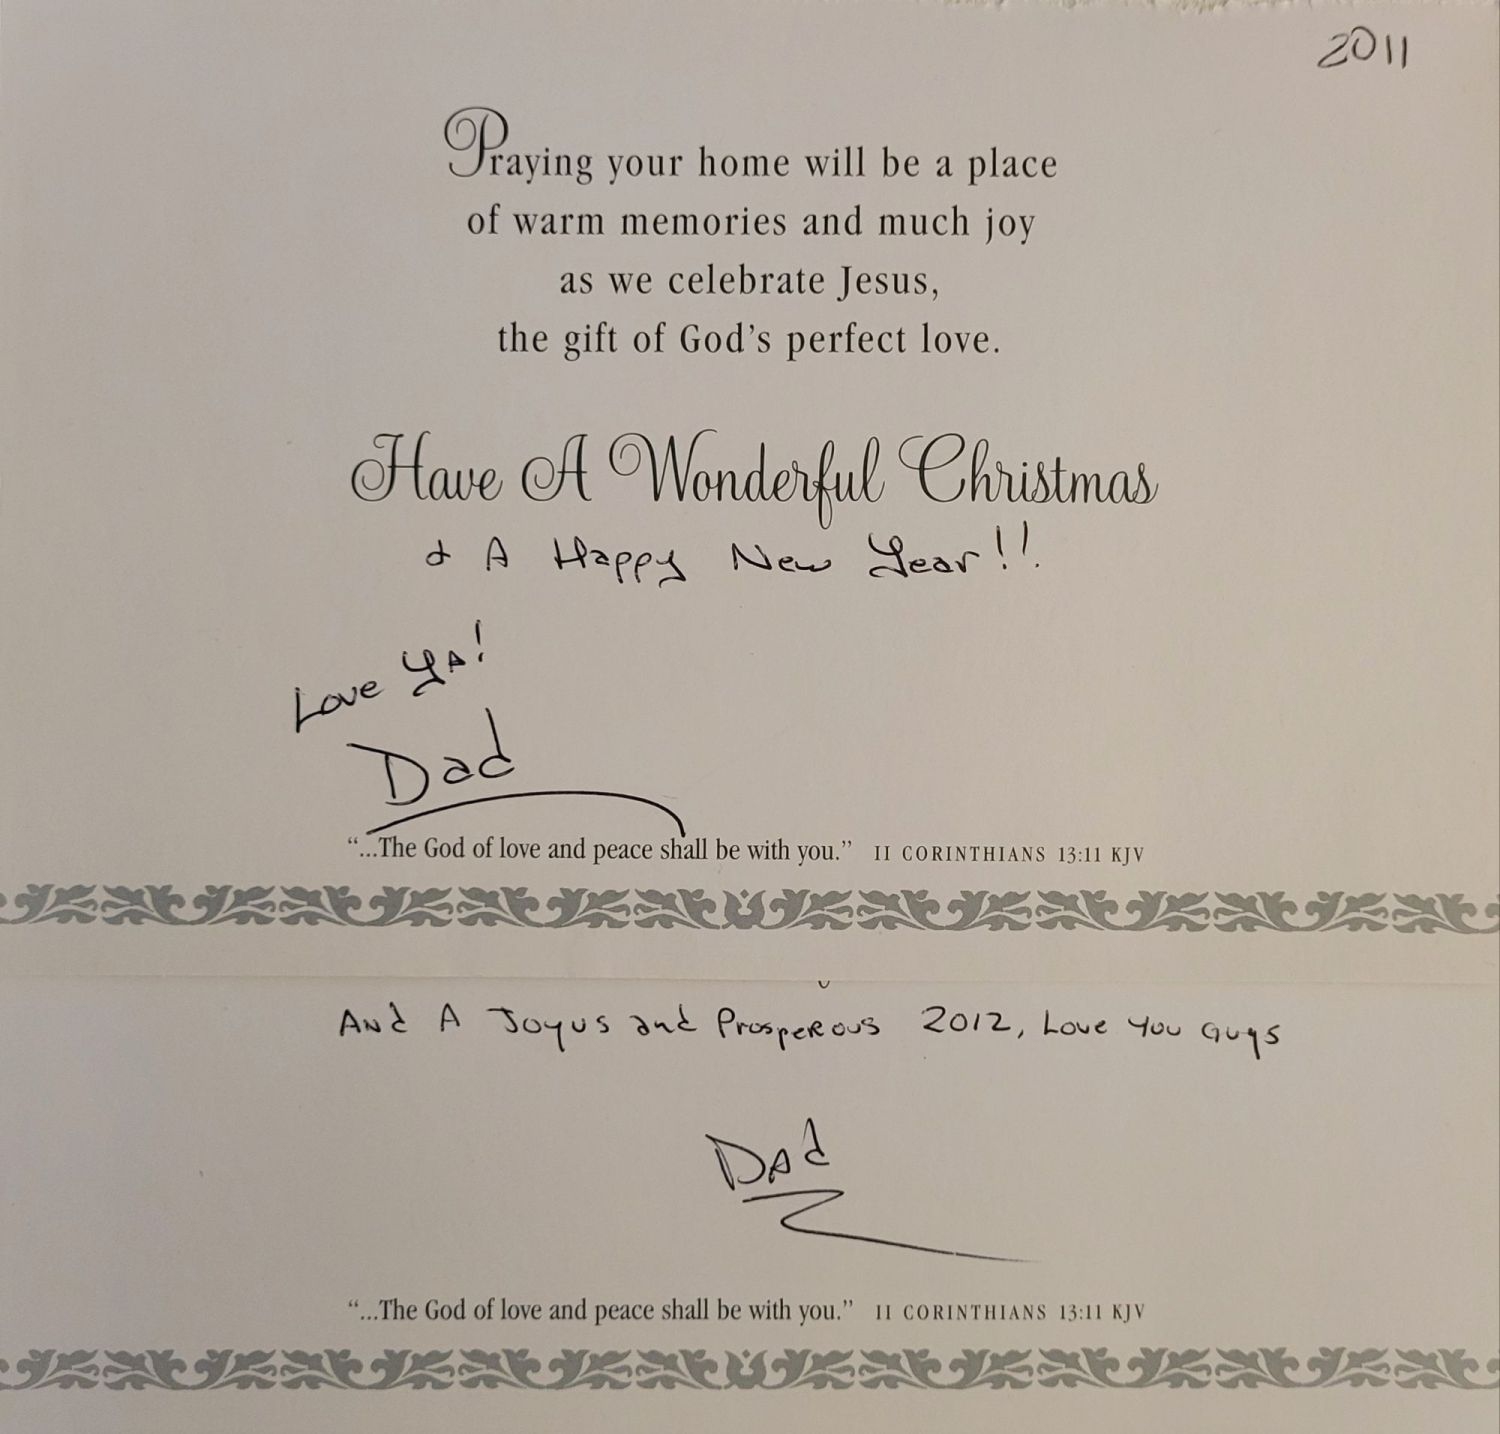 2011
Praying your home will be a place
of warm memories and much joy
as we celebrate Jesus,
the gift of God's perfect love.
Have A Wonderful Christmas
& A Happy New Year!!
Love Ya!
Dad
“...The God of love and peace shall be with you.” II CORINTHIANS 13:11 KJV
And A Joyus and Prosperous 2012, Love You Guys
Dad
“...The God of love and peace shall be with you.” II CORINTHIANS 13:11 KJV